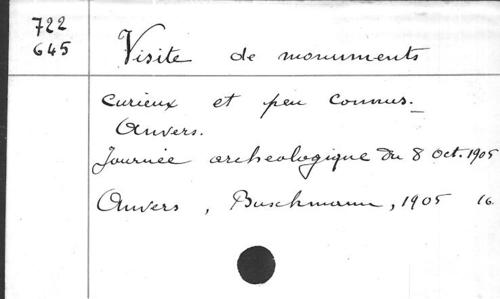 722
645
Visite de monuments
curieux et peu connus.
Anvers.
Journée archéologique du 8 Oct. 1905
Anvers, Buschmann, 1905 16.